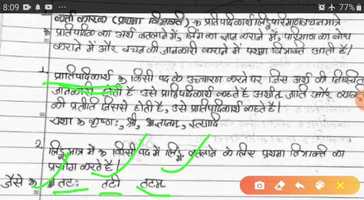 8:09
कर्ता कारक (प्रथमा विभक्ति) प्रातिपदिकार्थ लिङ्ग परिमाण वचन मात्रे
प्रातिपदिक का अर्थ बतलाने में, लिंग का ज्ञान कराने में, परिमाण का बोध
कराने में और वचन की जानकारी कराने में प्रथमा विभक्ति आती है।
1. प्रातिपदिकार्थ किसी पद के उच्चारण करने पर जिस अर्थ की निश्चित
जानकारी होती है उसे प्रातिपदिकार्थ कहते हैं अर्थात् जाति और व्यक्ति
की प्रतीति जिससे होती है, उसे प्रातिपदिकार्थ कहते हैं।
यथा कृष्णः, श्री, ज्ञानम्, इत्यादि
2. लिङ्ग मात्र में किसी पद में लिङ्ग बतलाने के लिए प्रथमा विभक्ति का
प्रयोग करते हैं।
जैसे तटः तटी तटम्